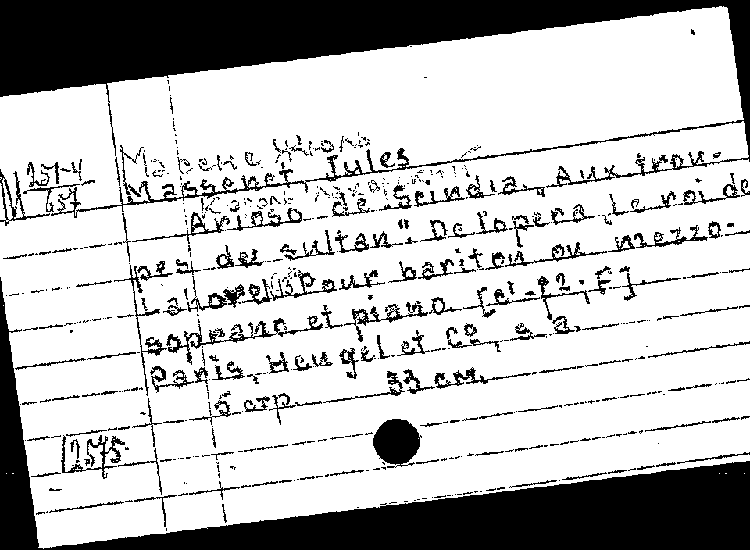 М 251-4
657
Массне Жюль
Massenet, Jules
Король Лахорский
Arioso de Scindia. „Aux trou-
pes du sultan". De l'opera „Le roi de
Lahore" N13 pour bariton ou mezzo-
soprano et piano. [e¹-f2; F].
Paris, Heugel et Cº, s. a.
5 стр. 33 см.
12575